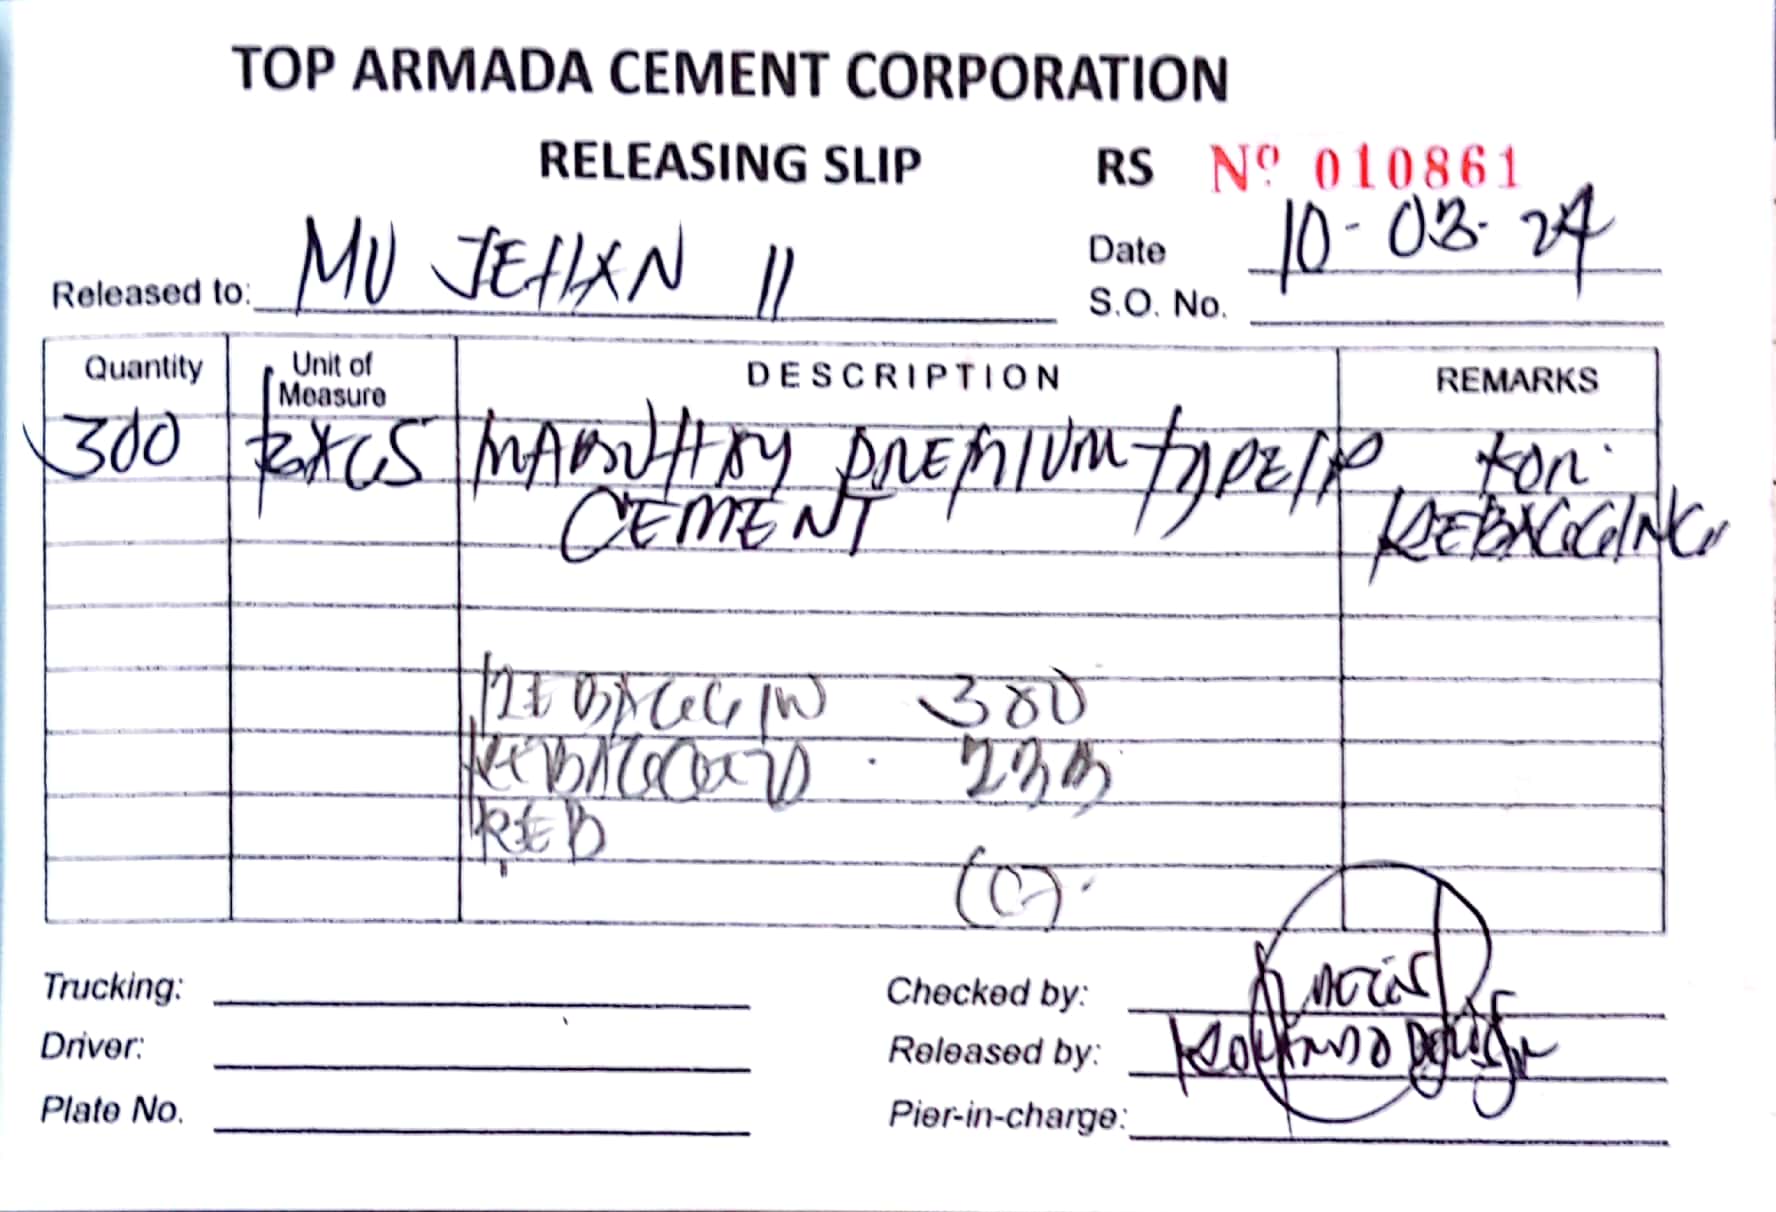 TOP ARMADA CEMENT CORPORATION
RELEASING SLIP RS Nº 010861
Date 10-03-24
Released to: MV JEHAN II
S.O. No.
Quantity Unit of Measure DESCRIPTION REMARKS
300 BAGS MABUHAY PREMIUM TYPE 1P FOR
CEMENT REBAGGING
REBAGGIN 300
233
REB
Trucking: Checked by:
Driver: Released by: ROLANDO
Plate No. Pier-in-charge: